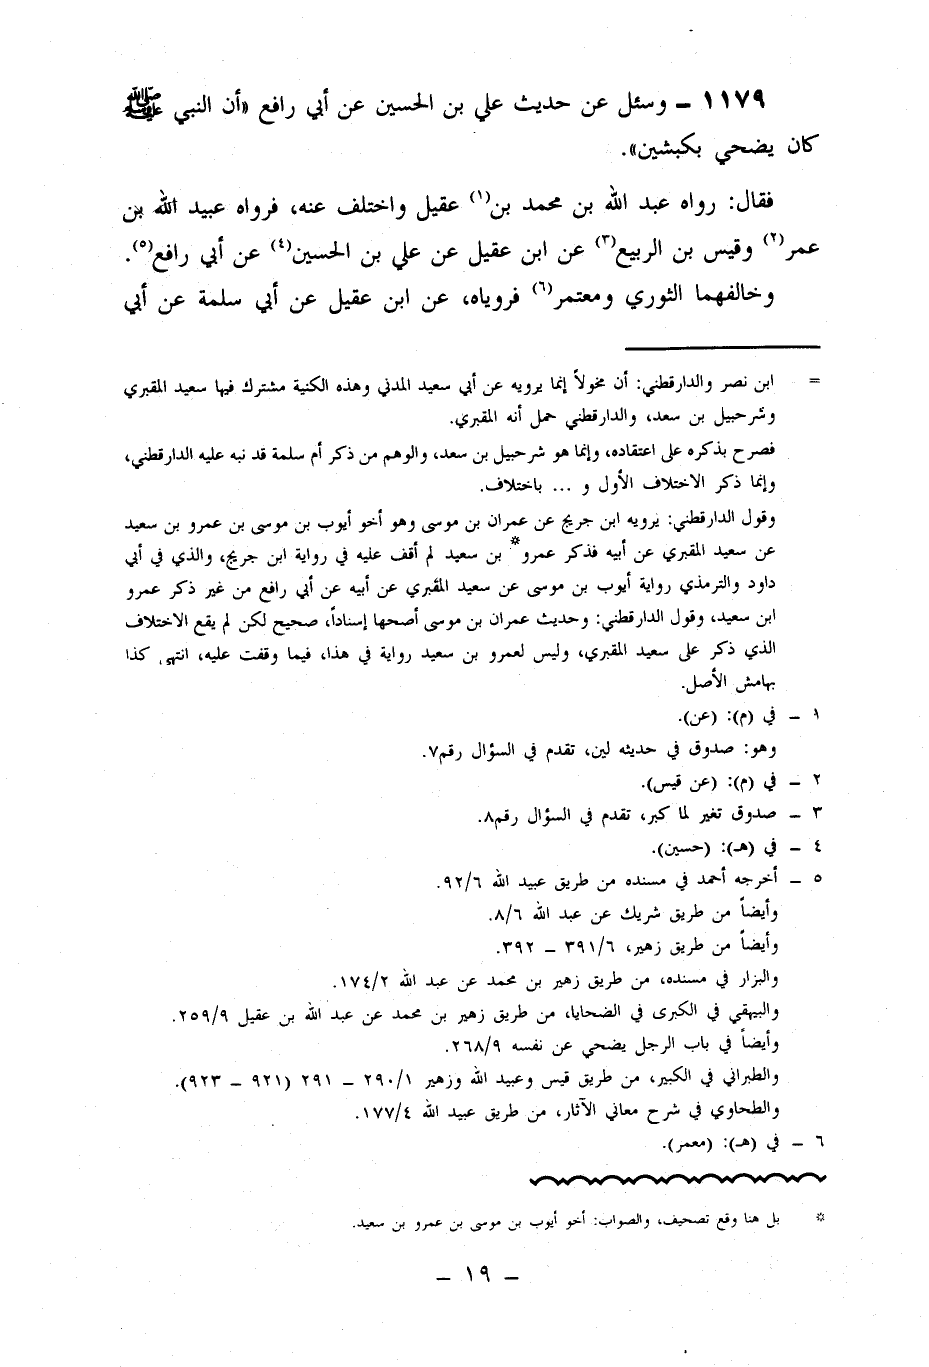 ١١٧٩ ـ وسئل عن حديث علي بن الحسين عن أبي رافع «أن النبي ﷺ
كان يضحي بكبشين».
فقال: رواه عبد الله بن محمد بن(١) عقيل واختلف عنه، فرواه عبيد الله بن
عمر(٢) وقيس بن الربيع(٣) عن ابن عقيل عن علي بن الحسين(٤) عن أبي رافع(٥).
وخالفهما الثوري ومعتمر(٦) فروياه، عن ابن عقيل عن أبي سلمة عن أبي
= ابن نصر والدارقطني: أن مخولاً إنما يرويه عن أبي سعيد المدني وهذه الكنية مشترك فيها سعيد المقبري
وشرحبيل بن سعد، والدارقطني حمل أنه المقبري.
فصرح بذكره على اعتقاده، وإنما هو شرحبيل بن سعد، والوهم من ذكر أم سلمة قد نبه عليه الدارقطني،
وإنما ذكر الاختلاف الأول و ... باختلاف.
وقول الدارقطني: يرويه ابن جريج عن عمران بن موسى وهو أخو أيوب بن موسى بن عمرو بن سعيد
عن سعيد المقبري عن أبيه فذكر عمرو* بن سعيد لم أقف عليه في رواية ابن جريج، والذي في أبي
داود والترمذي رواية أيوب بن موسى عن سعيد المقبري عن أبيه عن أبي رافع من غير ذكر عمرو
ابن سعيد، وقول الدارقطني: وحديث عمران بن موسى أصحها إسناداً، صحيح لكن لم يقع الاختلاف
الذي ذكر على سعيد المقبري، وليس لعمرو بن سعيد رواية في هذا، فيما وقفت عليه، انتهى كذا
بهامش الأصل.
١ ـ في (م): (عن).
وهو: صدوق في حديثه لين، تقدم في السؤال رقم٧.
٢ ـ في (م): (عن قيس).
٣ ـ صدوق تغير لما كبر، تقدم في السؤال رقم٨.
٤ ـ في (هـ): (حسين).
٥ ـ أخرجه أحمد في مسنده من طريق عبيد الله ٩٢/٦.
وأيضاً من طريق شريك عن عبد الله ٨/٦.
وأيضاً من طريق زهير، ٣٩١/٦ ـ ٣٩٢.
والبزار في مسنده، من طريق زهير بن محمد عن عبد الله ١٧٤/٢.
والبيهقي في الكبرى في الضحايا، من طريق زهير بن محمد عن عبد الله بن عقيل ٢٥٩/٩.
وأيضاً في باب الرجل يضحي عن نفسه ٢٦٨/٩.
والطبراني في الكبير، من طريق قيس وعبيد الله وزهير ٢٩٠/١ ـ ٢٩١ (٩٢١ ـ ٩٢٣).
والطحاوي في شرح معاني الآثار، من طريق عبيد الله ١٧٧/٤.
٦ ـ في (هـ): (معمر).
* بل هنا وقع تصحيف، والصواب: أخو أيوب بن موسى بن عمرو بن سعيد.
ـ ١٩ ـ